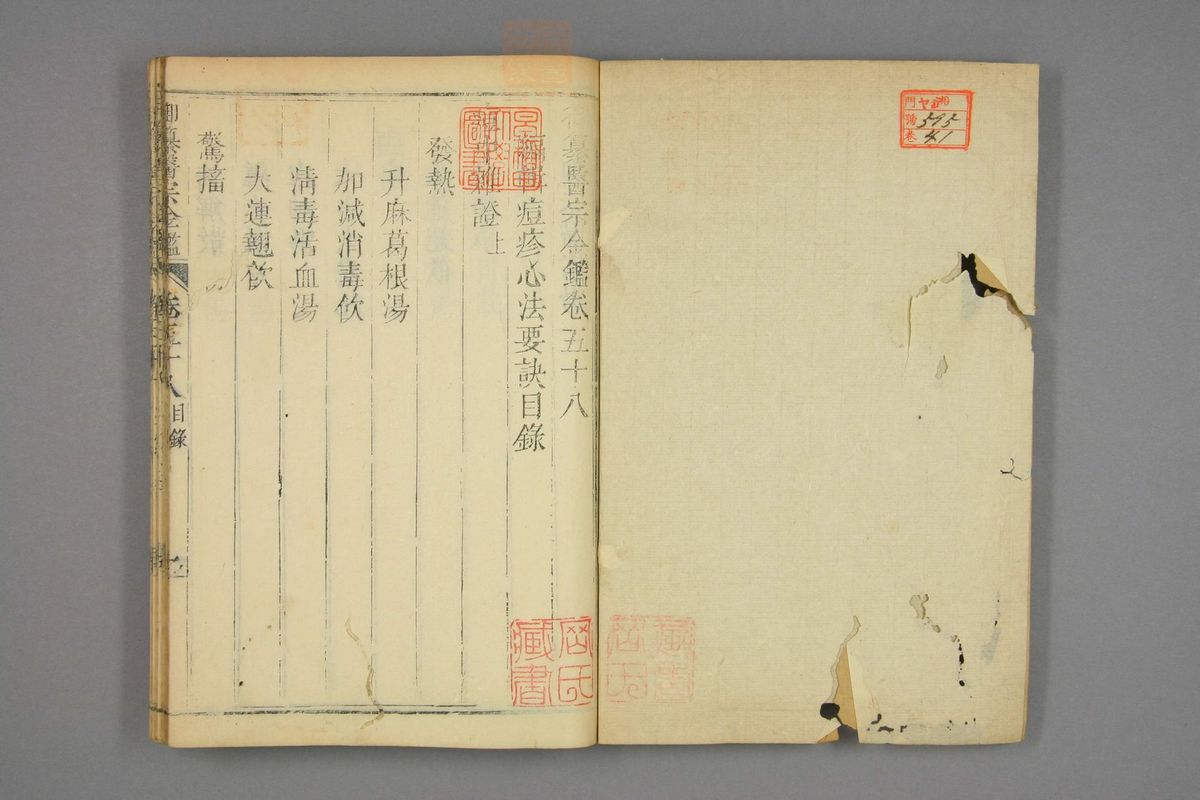 御纂醫宗金鑑卷五十八
編輯痘疹心法要訣目錄
痘中雜證上
發熱
升麻葛根湯
加減消毒飲
清毒活血湯
大連翹飲
驚搐
御纂醫宗金鑑
卷五十八
目錄
周氏
藏書
門
號 595
卷 41